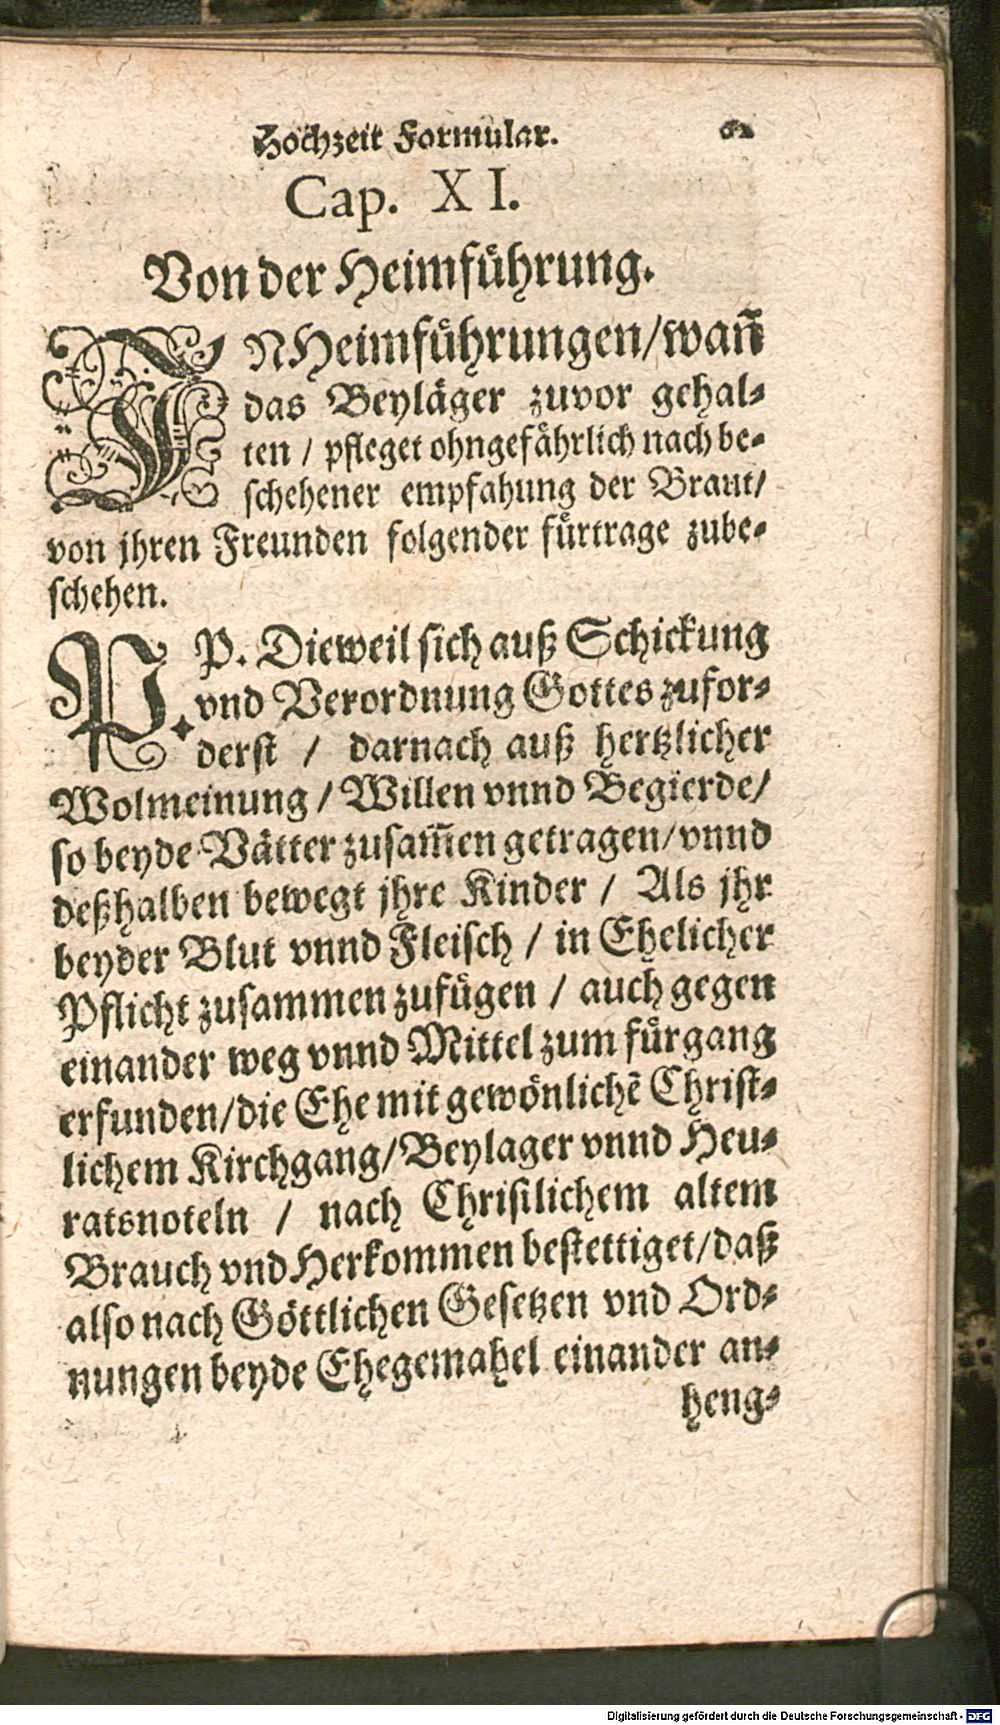 Hochzeit Formular.
Cap. XI.
Von der Heimführung.
IN Heimführungen/wañ
das Beyläger zuvor gehal-
ten / pfleget ohngefährlich nach be-
schehener empfahung der Braut/
von jhren Freunden folgender fürtrage zube-
schehen.
P. P. Dieweil sich auß Schickung
vnd Verordnung Gottes zufor-
derst / darnach auß hertzlicher
Wolmeinung / Willen vnnd Begierde/
so beyde Vätter zusam̃en getragen/vnnd
deßhalben bewegt jhre Kinder / Als jhr
beyder Blut vnnd Fleisch / in Ehelicher
Pflicht zusammen zufügen / auch gegen
einander weg vnnd Mittel zum fürgang
erfunden/die Ehe mit gewönlichẽ Christ-
lichem Kirchgang/Beylager vnnd Heu-
ratsnoteln / nach Christlichem altem
Brauch vnd Herkommen bestettiget/daß
also nach Göttlichen Gesetzen vnd Ord-
nungen beyde Ehegemahel einander an-
heng-
Digitalisierung gefördert durch die Deutsche Forschungsgemeinschaft - DFG